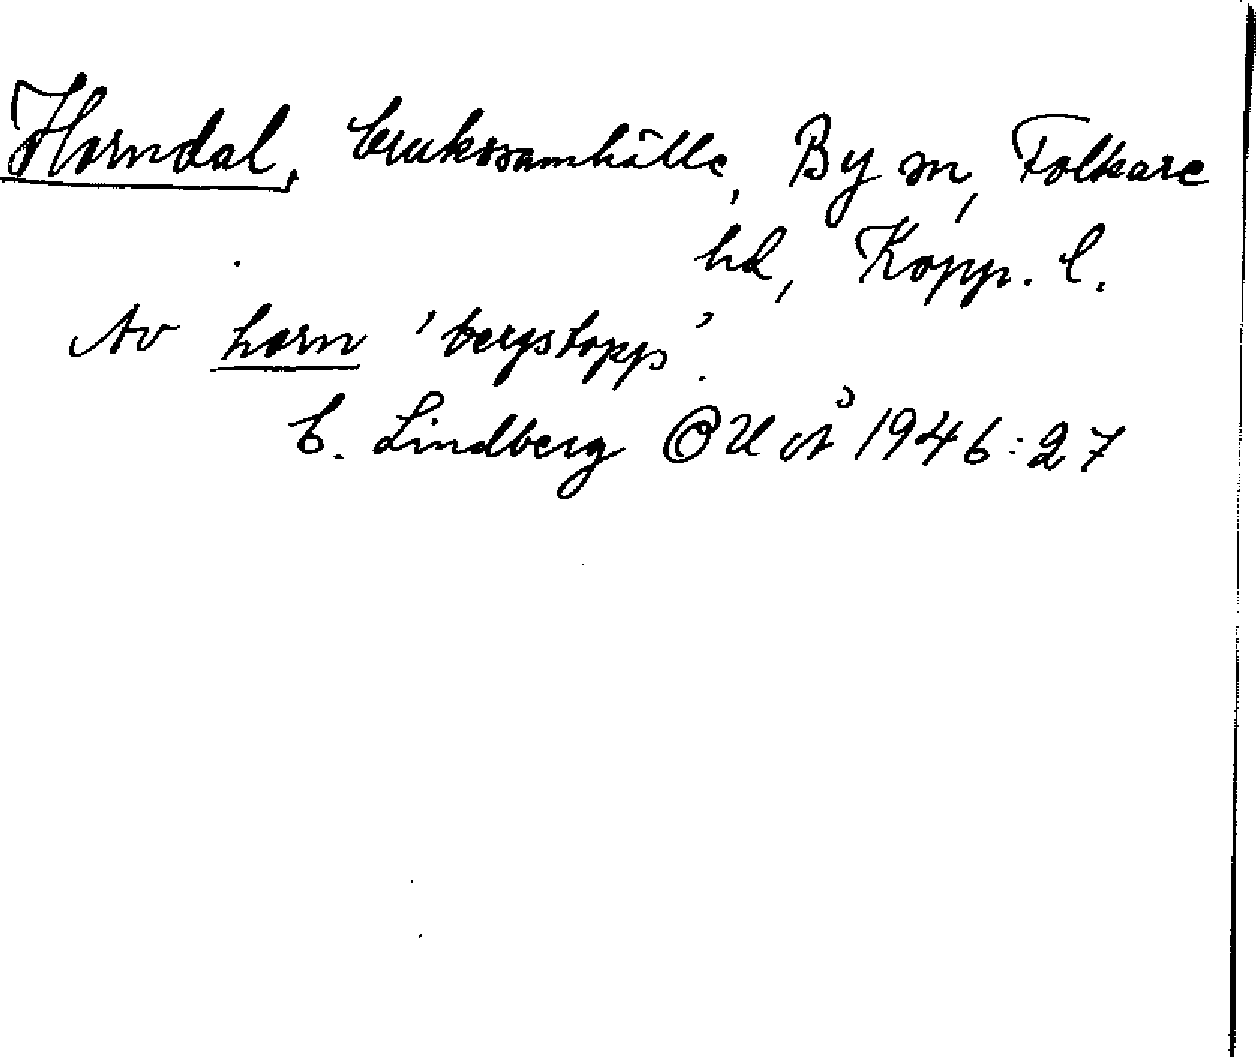 Horndal, brukssamhälle, By sn, Folkare
hd, Kopp. l.
Av horn 'bergstopp'.
C. Lindberg OUÅ 1946:27